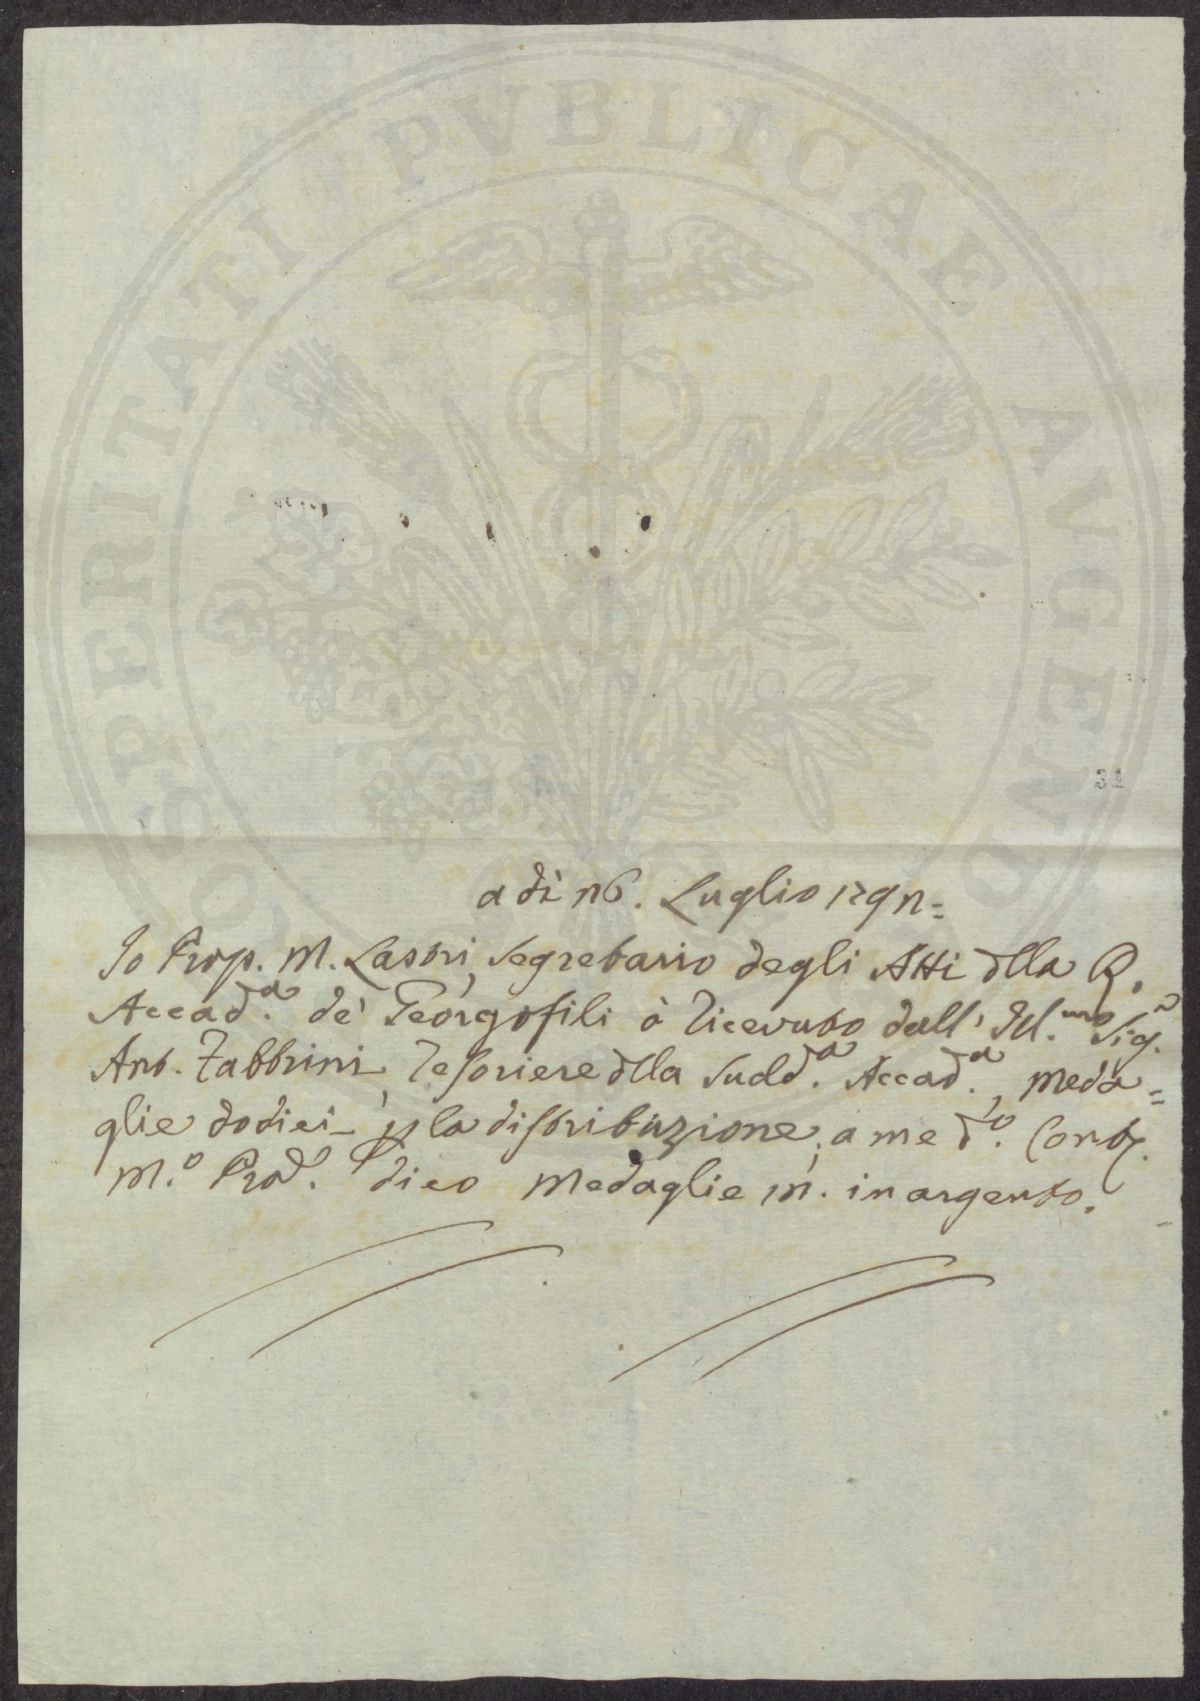 PROSPERITATI PVBLICAE AVGENDAE
31
a dì 26. Luglio 1792=
Io Prop. M. Lastri, Segretario degli Atti dlla R.
Accad.a de' Georgofili ò ricevuto dall' Ill.mo Sig.r
Ant. Fabbrini, Tesoriere dlla Sudd.a Accad.a, meda=
glie dodici p la distribuzione, a me d.o
M.o Prod. dico Medaglie 12. in argento.